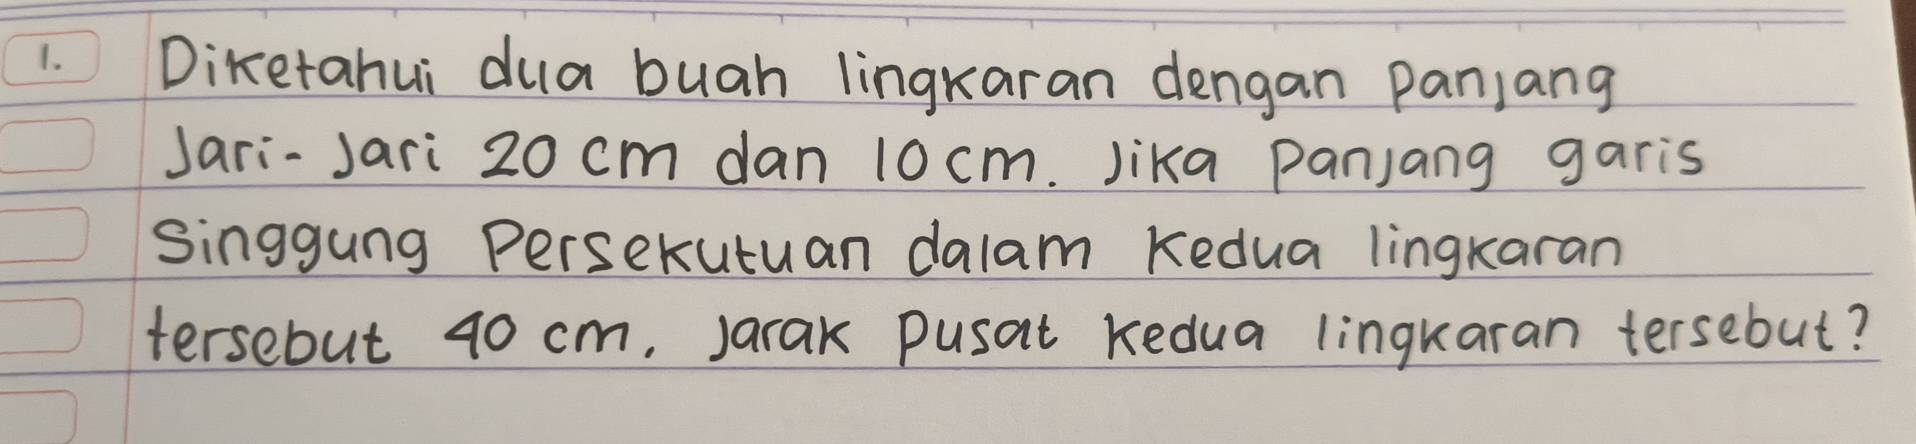 1. Diketahui dua buah lingkaran dengan panjang
Jari-Jari 20 cm dan 10 cm. Jika panjang garis
singgung Persekutuan dalam kedua lingkaran
tersebut 40 cm, Jarak pusat kedua lingkaran tersebut?